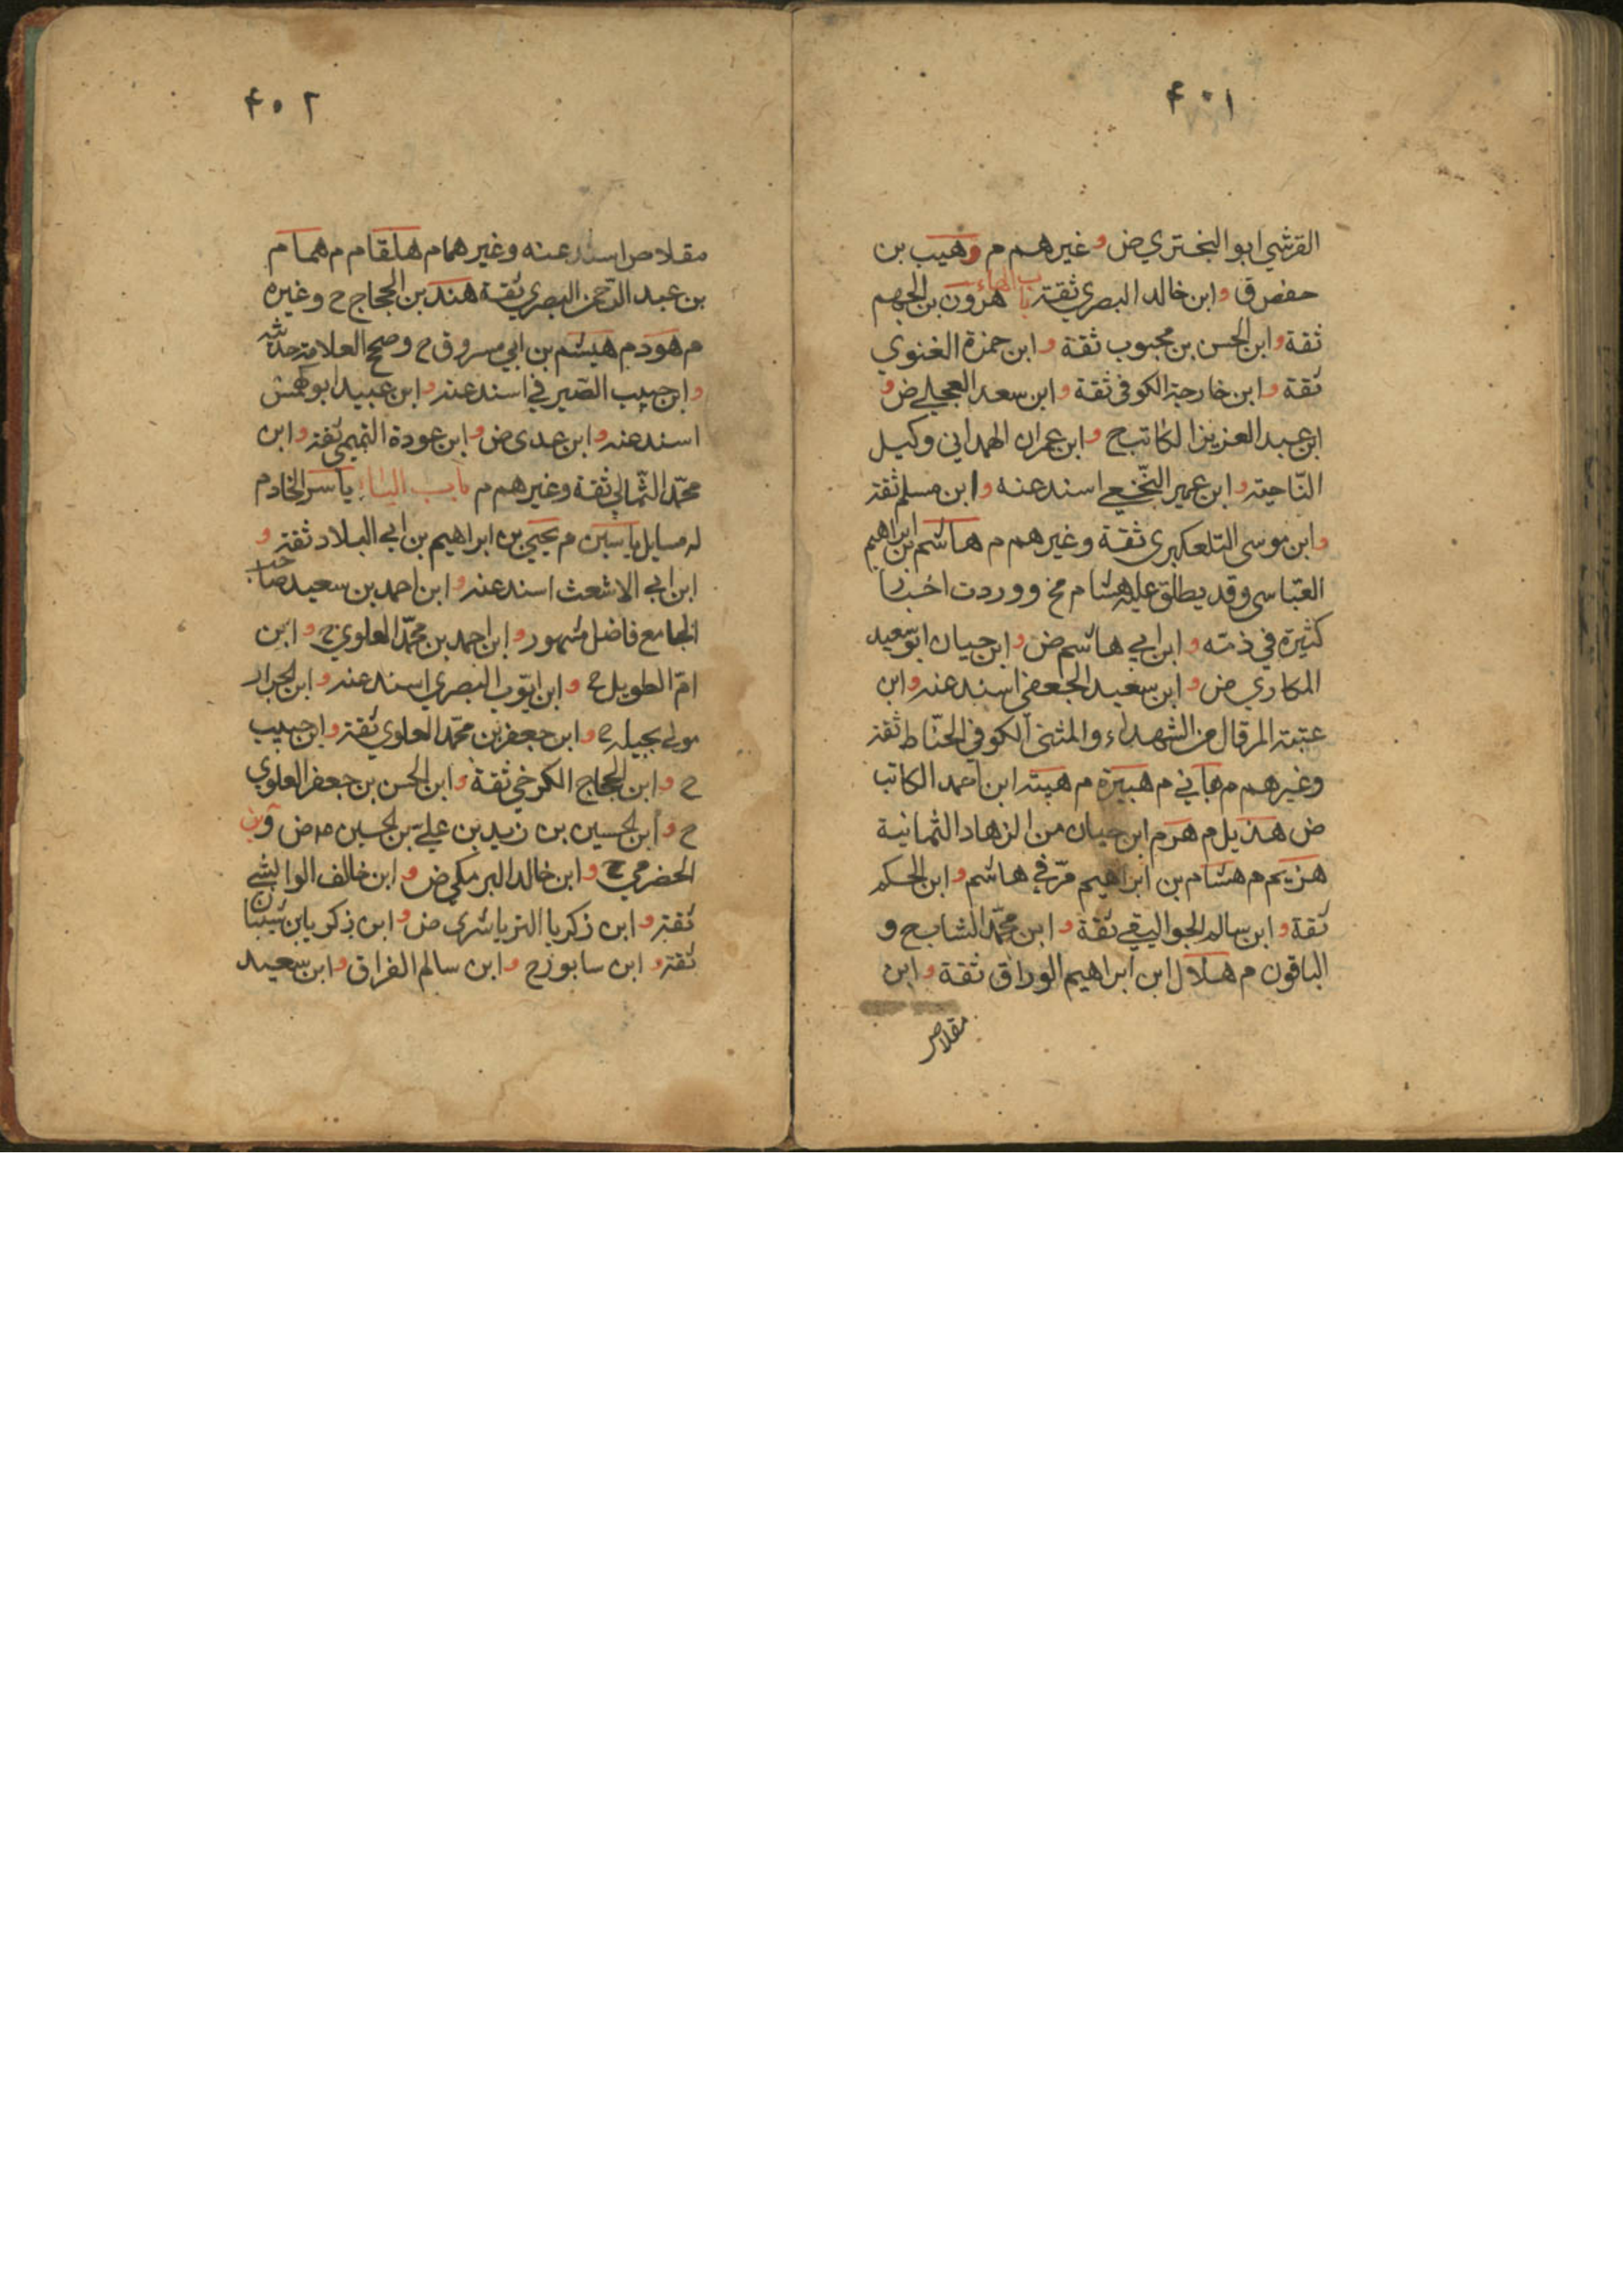 ٤٠١
القرشي ابو البختري ض و غيرهم م وهيب بن
حفص ق و ابن خالد البصري ثقة باب الهاء هرون بن الجهم
ثقة و ابن الحسن بن محبوب ثقة و ابن حمزة الغنوي
ثقة و ابن خارجة الكوفي ثقة و ابن سعد العجلي ض و
ابن عبد العزيز الكاتب ح و ابن عمران الهمداني وكيل
النّاحية و ابن عمير النّخعي اسند عنه و ابن مسلم ثقة
و ابن موسى التلعكبري ثقة وغيرهم م هاشم بن ابراهيم
العبّاسي وقد يطلق عليه هشام مخ ووردت اخبار
كثيرة في ذمّه و ابن ابي هاشم ض و ابن حيان ابو سعيد
المكاري ض و ابن سعيد الجعفي اسند عنه و ابن
عتبة المرقال من الشهداء والمثنى الكوفي الحنّاط ثقة
وغيرهم م هاني م هبيرة م هبة ابن احمد الكاتب
ض هذيل م هرم ابن حيان من الزهاد الثمانية
هزيم م هشام بن ابراهيم مرّ في هاشم و ابن الحكم
ثقة و ابن سالم الجواليقي ثقة و ابن محمّد الشايح و
الباقون م هلال ابن ابراهيم الوراق ثقة و ابن
مقلاص
٤٠٢
مقلاص اسند عنه وغيرهما م هلقام م همام
بن عبد الرّحمن البصري ثقة هند بن الحجاج ح وغيره
م هود م هيثم بن ابي مسروق ح وصحح العلامة حديثه
و ابن حبيب الصّيرفي اسند عنه و ابن عبيد ابو كهمش
اسند عنه و ابن عدي ض و ابن عودة التميمي ثقة و ابن
محمّد الثمالي ثقة وغيرهم م باب الياء ياسر الخادم
له مسايل ياسين م يحيى بن ابراهيم بن ابي البلاد ثقة و
ابن ابي الاشعث اسند عنه و ابن احمد بن سعيد صاحب
الجامع فاضل مشهور و ابن احمد بن محمّد العلوي ح و ابن
امّ الطويل ح و ابن ايّوب البصري اسند عنه و ابن الجرار
مولى بجيلة ح و ابن جعفر بن محمّد العلوي ثقة و ابن حبيب
ح و ابن الحجاج الكرخي ثقة و ابن الحسن بن جعفر العلوي
ح و ابن الحسين بن زيد بن علي بن الحسين ض و ابن
الحضرمي ح و ابن خالد البرمكي ض و ابن خالف الوابشي
ثقة و ابن زكريا الترياشري ض و ابن زكريا بن شيبان
ثقة و ابن سابور ح و ابن سالم الفراق و ابن سعيد